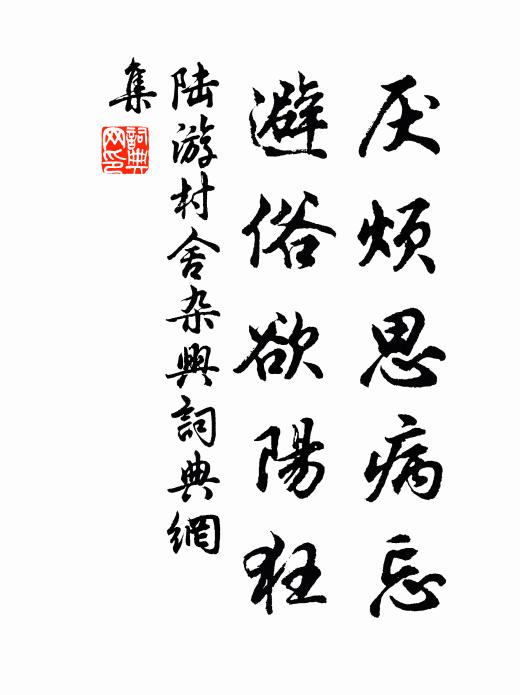 厌烦思病忘
避俗欲陽狂
陆游村舍杂興詞典網
集
詞典網印